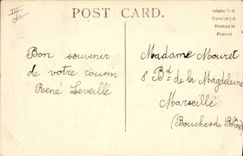 POST CARD.
Printed in
France
Bon souvenir
de votre cousin
René Léveillé
Madame Mouret
8 Bd de la Magdeleine
Marseille
(Bouches du Rhône)